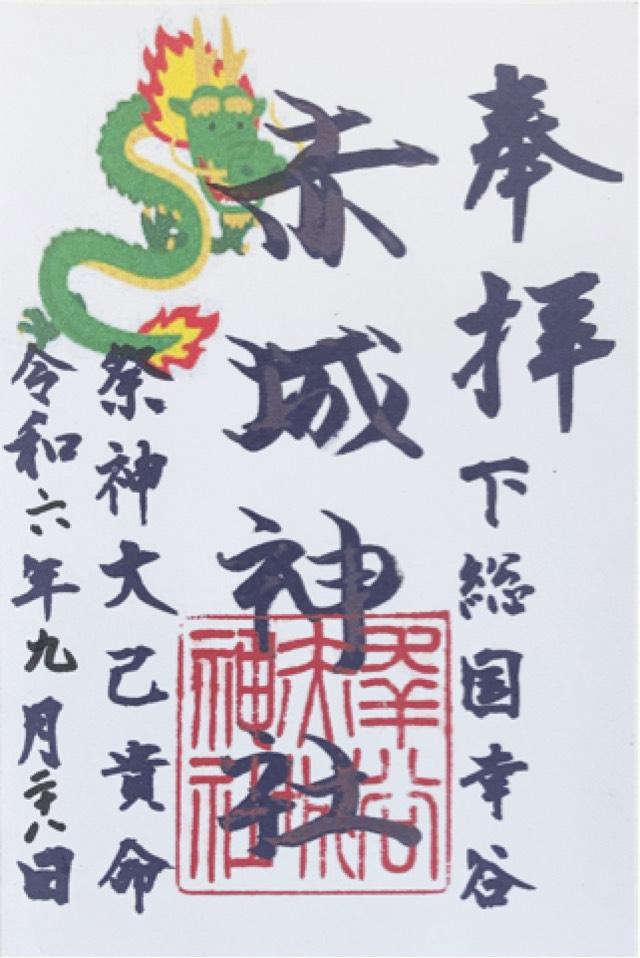 奉拝
下総国幸谷
赤城神社
幸谷
赤城
神社
祭神大己貴命
令和六年九月二十八日